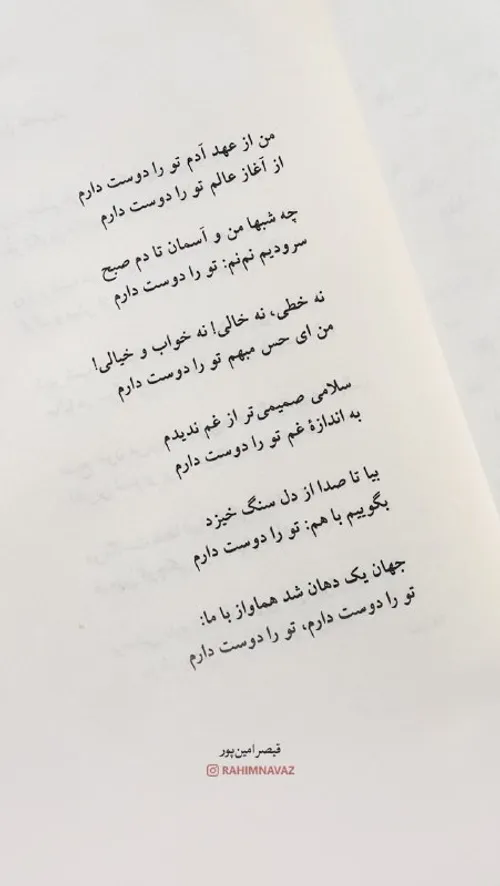 من از عهد آدم تو را دوست دارم
از آغاز عالم تو را دوست دارم
چه شبها من و آسمان تا دم صبح
سرودیم نم‌نم: تو را دوست دارم
نه خطی، نه خالی! نه خواب و خیالی!
من ای حس مبهم تو را دوست دارم
سلامی صمیمی‌تر از غم ندیدم
به اندازهٔ غم تو را دوست دارم
بیا تا صدا از دل سنگ خیزد
بگوییم با هم: تو را دوست دارم
جهان یک دهان شد هماواز با ما:
تو را دوست دارم، تو را دوست دارم
قیصر امین‌پور
RAHIMNAVAZ